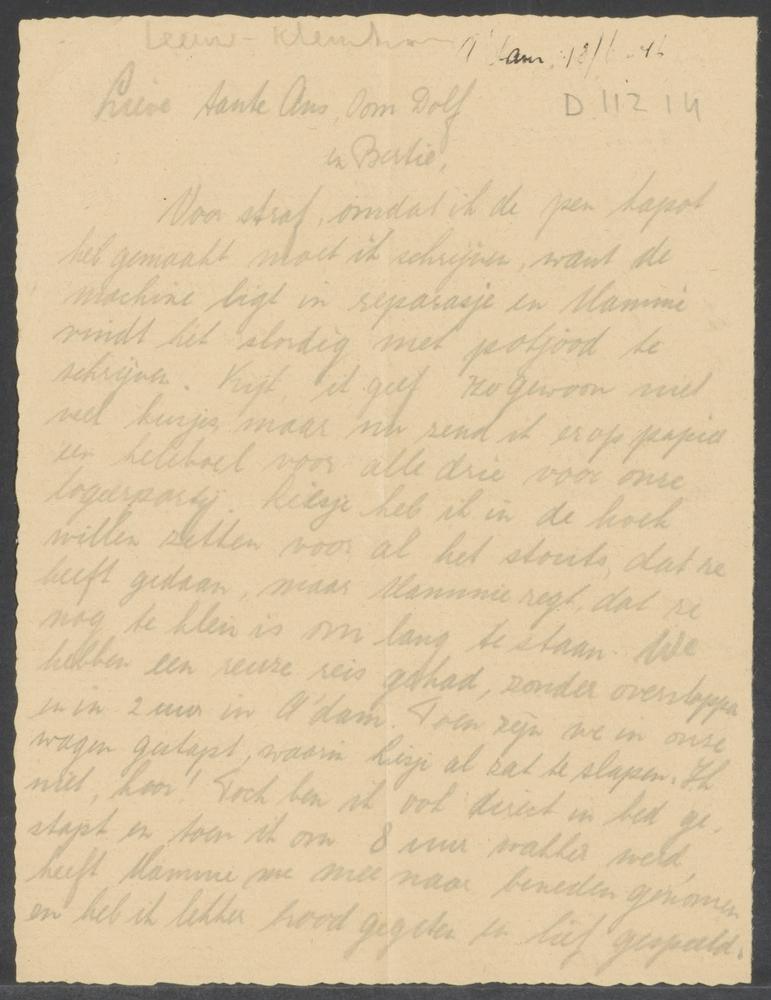 Leeuw-Kleinkr
A'dam, 18/6-46
D 112 14
Lieve tante Ans, Oom Dolf
en Bertie,
Voor straf, omdat ik de pen kapot
heb gemaakt moet ik schrijven, want de
machine ligt in reparasje en Mammie
vindt het slordig met potjood te
schrijven. ik geef zo gewoon niet
veel kusjes maar nu zend ik er op papier
een heleboel voor alle drie voor onze
logeerparty. Liesje heb ik in de hoek
willen zetten voor al het stouts, dat ze
heeft gedaan, maar Mammie zegt, dat ze
nog te klein is om lang te staan. We
hebben een reuze reis gehad, zonder overstappen
en in 2 uur in A'dam. Toen zijn we in onze
wagen gestapt, waarin Liesje al zat te slapen. Ik
niet, hoor! Toch ben ik ook direct in bed ge-
stapt en toen ik om 8 uur wakker werd
heeft Mammie me mee naar beneden genomen
en heb ik lekker brood gegeten en lief gespeeld.